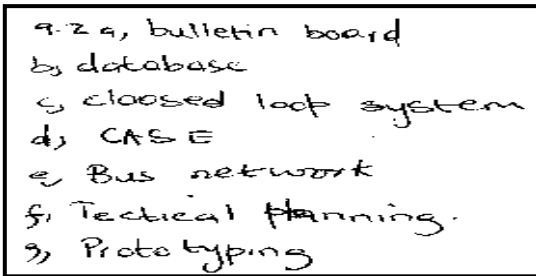 q.2 a, bulletin board
b, database
c, cloosed loop system
d, CASE
e, Bus network
f, Tectical planning.
g, Prototyping